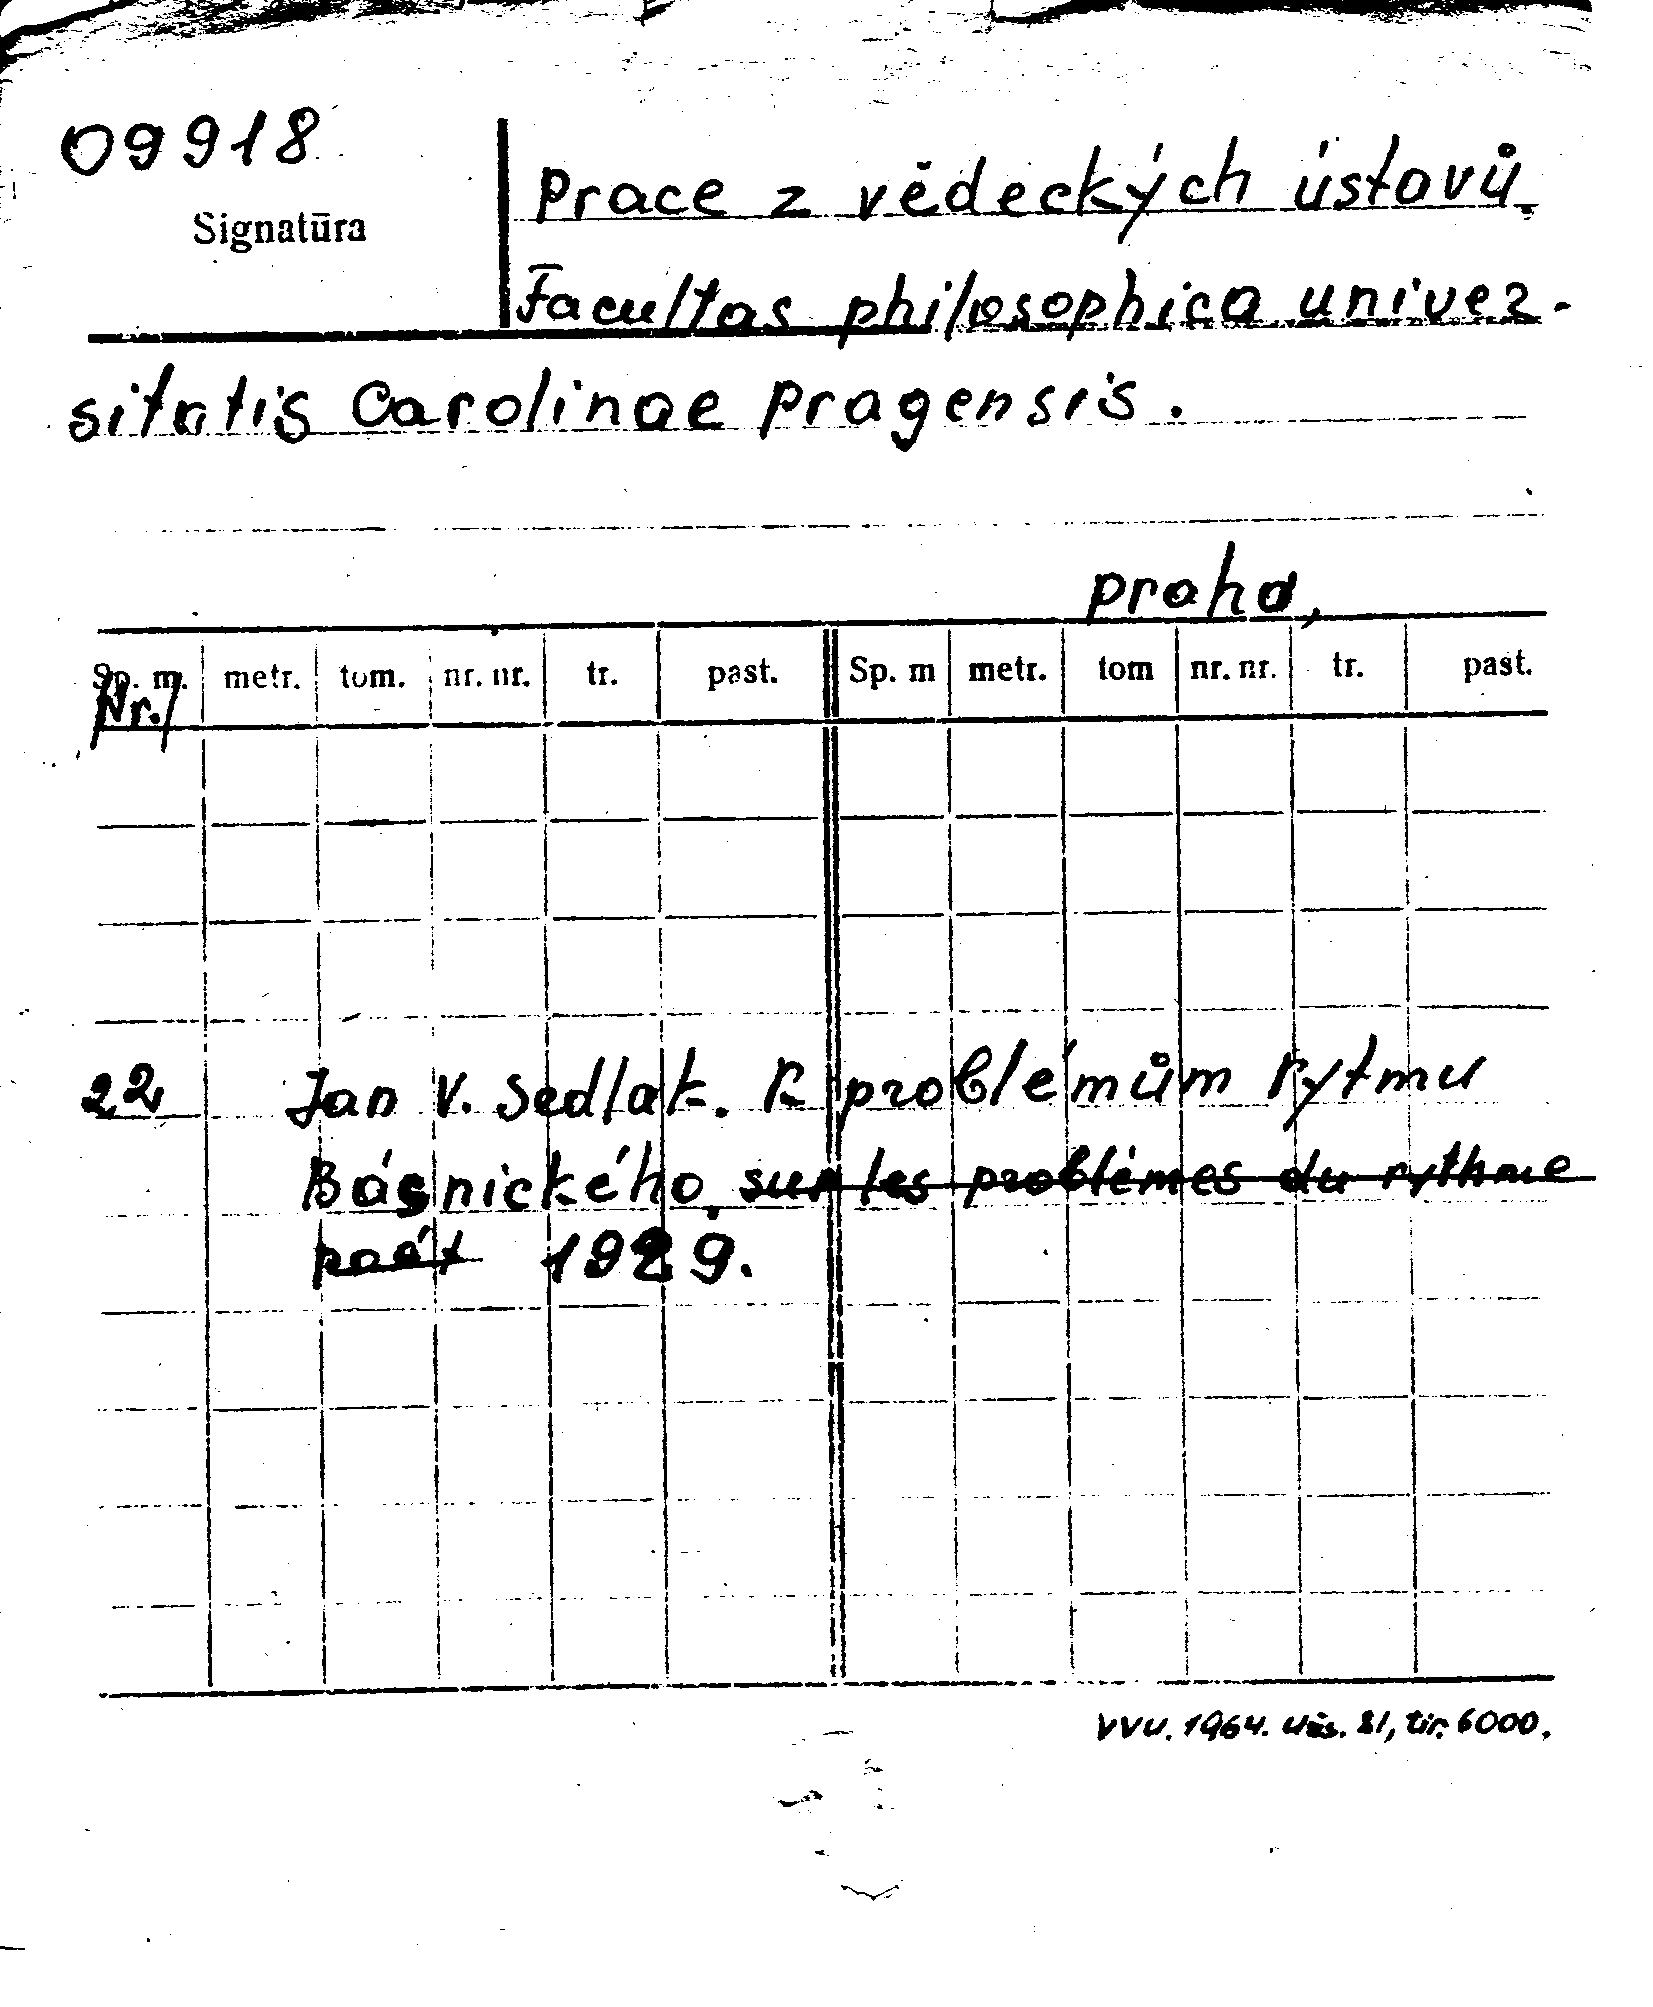 09918
Signatūra
Prace z vědeckých ústavů.
Facultas philosophica univer-
sitatis Carolinae pragensis.
praha,
Sp. m. metr. tom. nr. nr. tr. past. Sp. m metr. tom nr. nr. tr. past.
Nr./
22, Jan V. Sedlak. K problémům rytmu
Básnického. sur les problèmes du rythme
poét 1929.
VVU. 1964. Užs. 81, tir. 6000.